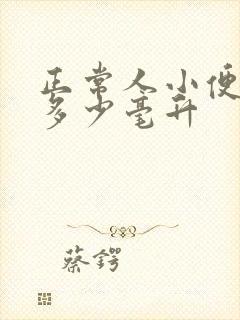 正常人小便
多少毫升
蔡锷